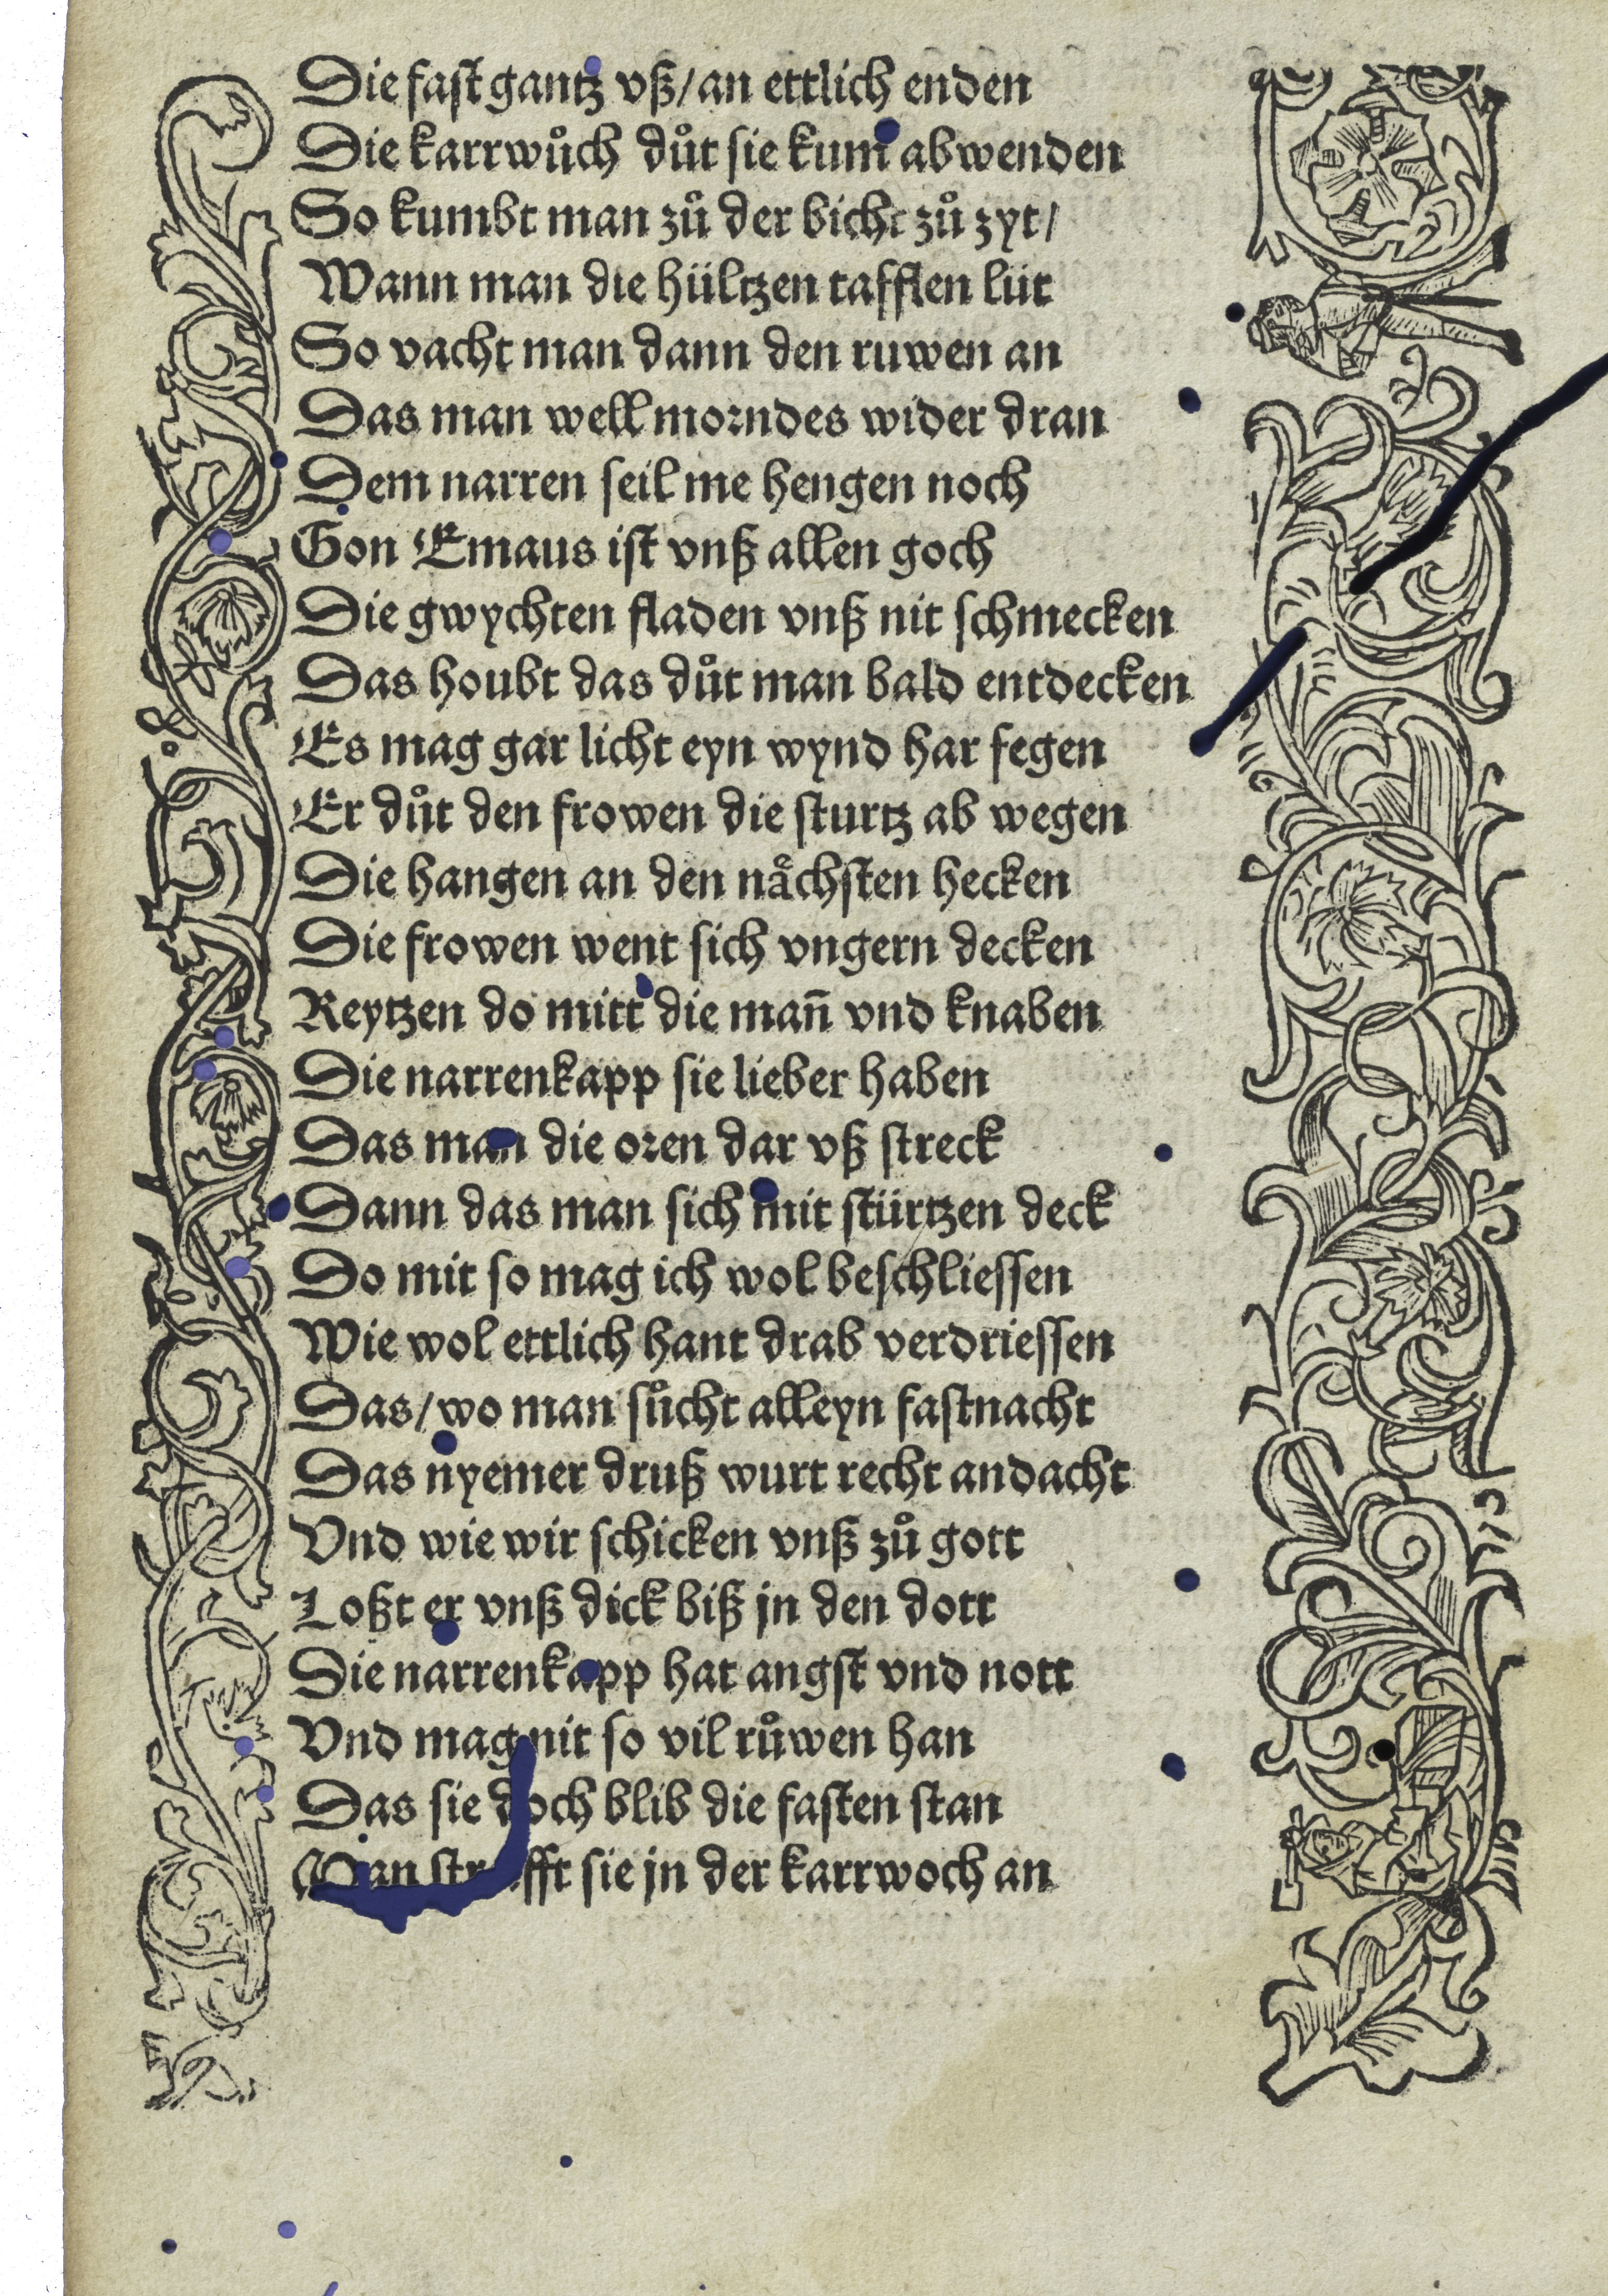 Die fast gantz vß/an ettlich enden
Die karrwůch důt sie kum abwenden
So kumbt man zů der bicht zů zyt/
Wann man die hültzen tafflen lüt
So vacht man dann den ruwen an
Das man well morndes wider dran
Dem narren seil me hengen noch
Gon Emaus ist vnß allen goch
Die gwychten fladen vnß nit schmecken
Das houbt das důt man bald entdecken
Es mag gar licht eyn wynd har fegen
Er důt den frowen die sturtz ab wegen
Die hangen an den nåchsten hecken
Die frowen went sich vngern decken
Reytzen do mitt die man̄ vnd knaben
Die narrenkapp sie lieber haben
Das man die oren dar vß streck
Dann das man sich mit stürtzen deck
Do mit so mag ich wol beschliessen
Wie wol ettlich hant drab verdriessen
Das/wo man sůcht alleyn fastnacht
Das nyemer druß wurt recht andacht
Vnd wie wir schicken vnß zů gott
Loßt er vnß dick biß jn den dott
Die narrenkapp hat angst vnd nott
Vnd mag nit so vil růwen han
Das sie doch blib die fasten stan
Man strofft sie jn der karrwoch an